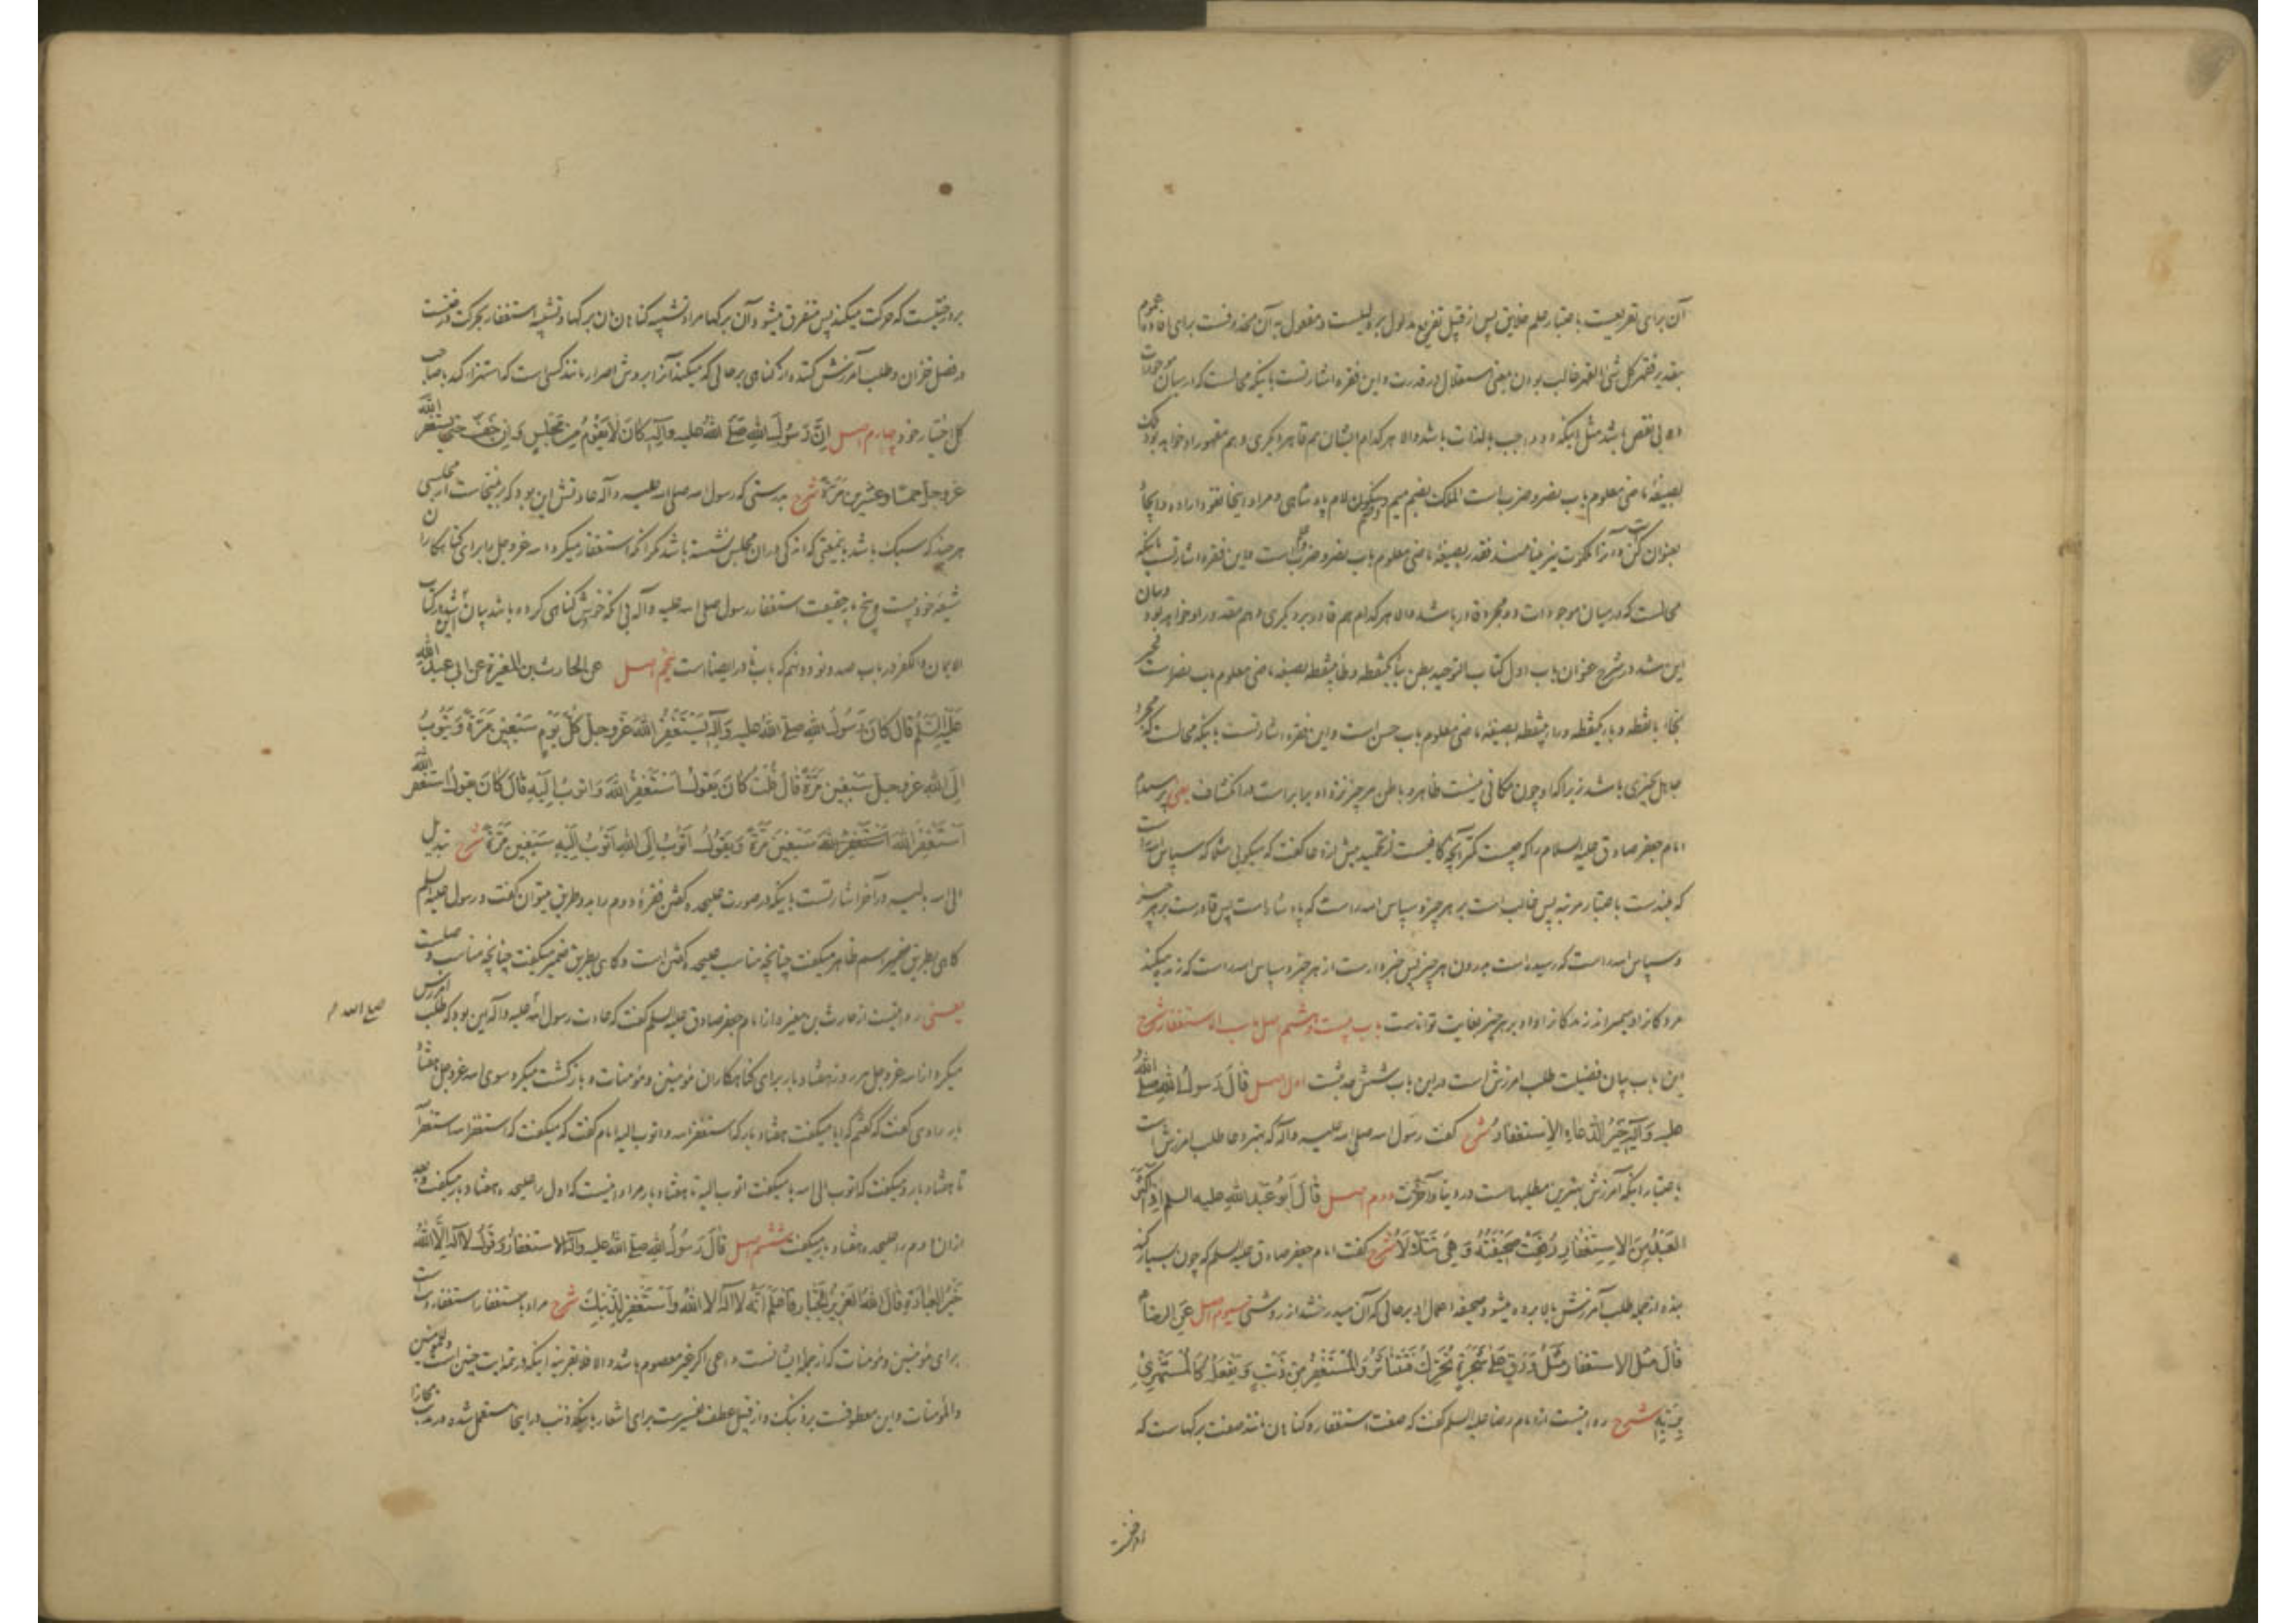 آن برای تفریعست باعتبار علم خلایق پس از قبیل تفریع مدلول بر دلیلست و مفعول به آن محذوفست برای افاده عموم
بتقدیر فقهر کل شیء القهر غالب بودن بمعنی استقلال در قدرت و این فقره اشارتست باینکه محالست که در میان موجودات
دو بی نقص باشد مثل اینکه دو واجب بالذات باشد والا هر کدام ایشان هم قاهر دیگری و هم مقهور او خواهد بود ملک
بصیغهٔ ماضی معلوم باب نصر و ضرب است الملک بضم میم و سکون لام پادشاهی و مراد اینجا نفوذ اراده در اینجا
بعنوان کن و آنرا ملکوت نیز مینامند فقدر بصیغهٔ ماضی معلوم باب نصر و ضرب است و این فقره اشارتست باینکه
محالست که در میان موجودات دو مجرد قادر باشد والا هر کدام هم قادر بر دیگری و هم مقدور او خواهد بود و بیان
این شد در شرح عنوان باب اول کتاب التوحید بطن بباء یکنقطه و طاء بینقطه بصیغهٔ ماضی معلوم باب نصر است فخبر
بخاء بانقطه و باء یکنقطه و راء بینقطه بصیغهٔ ماضی معلوم باب حسن است و این فقره اشارتست باینکه محالست که مجرد
جاهل بچیزی باشد زیرا که او چون مکانی نیست ظاهر و باطن هر چیز نزد او برابر است در انکشاف یعنی پرسیدم
امام جعفر صادق علیه السلام را که چیست کمتر آنچه کافیست از تحمید پیش از دعا گفت که میگویی مثلا که سپاس الله راست
که بلندست باعتبار مرتبه پس غالب است بر هر چیز و سپاس الله راست که پادشاهست پس قادرست بر هر چیز
و سپاس الله راست که رسیده است بدرون هر چیز پس خبردار است از هر چیز و سپاس الله راست که زنده میکند
مردگانرا و میمیراند زندگانرا و او بر هر چیز بغایت تواناست باب بیست و هشتم اصل باب الاستغفار شرح
این باب بیان فضیلت طلب آمرزش است درین باب شش حدیثست اول اصل قَالَ رَسُولُ اللهِ صَلَّى اللهُ
علیه وَآلِهِ خَیْرُ الدُّعَاءِ الِاسْتِغْفَارُ شرح گفت رسول الله صلی الله علیه و آله که بهتر دعا طلب آمرزش است
باعتبار اینکه آمرزش بهترین مطلبهاست در دنیا و آخرت دوم اصل قَالَ أَبُو عَبْدِ اللهِ علیه السلم إِذَا أَكْثَرَ
الْعَبْدُ مِنَ الِاسْتِغْفَارِ رُفِعَتْ صَحِیفَتُهُ وَ هِیَ تَتَلَأْلَأُ شرح گفت امام جعفر صادق علیه السلم که چون بسیار کند
بنده از جمله طلب آمرزش بالا برده میشود صحیفه اعمال او بر حالی که آن میدرخشد از روشنی سیوم اصل عَنِ الرضا م
قَالَ مَثَلُ الاستغفار مَثَلُ وَرَقٍ عَلَى شَجَرَةٍ تُحَرَّكُ فَتَتَنَاثَرُ وَالْمُسْتَغْفِرُ مِنْ ذَنْبٍ وَیَفْعَلُهُ كَالْمُسْتَهْزِئِ
بِرَبِّهِ شرح روایتست از امام رضا علیه السلم گفت که صفت استغفار و گناهان مانند صفت برگهاست که
بر درختیست که حرکت میکند پس متفرق میشود آن برگها مراد تشبیه گناهان بآن برگها و تشبیه استغفار بحرکت درختست
در فصل خزان و طلب آمرزش کننده از گناهی بر حالی که میکند آنرا بروش اصرار مانند کسی است که استهزا کند بصاحب
کل اختیار خود چهارم اصل اِنَّ رَسُولَ اللهِ صَلَّى اللهُ علیه وآلِهِ كَانَ لَا یَقُومُ مِنْ مَجْلِسٍ وَاِنْ خَفَّ حَتَّى یَسْتَغْفِرَ اللهَ
عز وجل خمسًا وعشرین مَرَّةً شرح بدرستی که رسول الله صلی الله علیه و آله عادتش این بود که بر نمیخاست از مجلسی
هر چند که سبک باشد بمعنی که اندکی در آن مجلس نشسته باشد مگر آنکه استغفار میکرد الله عز وجل را برای گناهکاران
شیعهٔ خود بیست و پنج بار حقیقت استغفار رسول صلی الله علیه و آله بی آنکه خودش گناهی کرده باشد بیان شد در کتاب
الایمان والکفر در باب صد و نود و نهم که باب نادر ایضا است پنجم اصل عن الحارث بن المغیرة عن ابی عبد الله
عَلَیْهِ السَّلَمُ قَالَ كَانَ رَسُولُ اللهِ صلی اللهُ علیه وَآلِهِ یَسْتَغْفِرُ اللهَ عَزَّ وجل كُلَّ یَوْمٍ سَبْعِینَ مَرَّةً وَیَتُوبُ
اِلَى اللهِ عز وجل سَبْعِینَ مَرَّةً قَالَ قُلْتُ كَانَ یَقُولُ اَسْتَغْفِرُ اللهَ وَاَتُوبُ اِلَیْهِ قَالَ كَانَ یَقُولُ اَسْتَغْفِرُ اللهَ
اَسْتَغْفِرُ اللهَ اَسْتَغْفِرُ اللهَ سَبْعِینَ مَرَّةً وَیَقُولُ اَتُوبُ اِلَى اللهِ اَتُوبُ اِلَیْهِ سَبْعِینَ مَرَّةً شرح تبدیل
الی الله بالیه در آخر اشارتست باینکه در صورت علیحده گفتن فقرهٔ دوم را بدو طریق میتوان گفت و رسول علیه السلم
گاهی بطریق ضمیر اسم ظاهر میگفت چنانچه مناسب علیحده گفتن است و گاهی بطریق ضمیر میگفت چنانچه مناسب وصلست
یعنی روایتست از حارث بن مغیره از امام جعفر صادق علیه السلم گفت که عادت رسول الله علیه و آله این بود که طلب آمرزش
صلی الله م
میکرد از الله عز وجل هر روز هفتاد بار برای گناهکاران مؤمنین و مؤمنات و بازگشت میکرد سوی الله عز وجل هفتاد
بار راوی گفت که گفتم که آیا میگفت هفتاد بار که استغفر الله و اتوب الیه امام گفت که میگفت که استغفر الله استغفر الله
تا هفتاد بار و میگفت که اتوب الی الله یا میگفت اتوب الیه تا هفتاد بار مراد اینست که اول را علیحده هفتاد بار میگفت و بعد
از آن دوم را علیحده هفتاد بار میگفت ششم اصل قَالَ رَسُولُ اللهِ صلی اللهُ علیه وآله الاستغفارُ وَقَوْلُ لَا اِلَهَ اِلَّا اللهُ
خَیْرُ الْعِبَادَةِ قَالَ اللهُ الْعَزِیزُ الْجَبَّارُ فَاعْلَمْ اَنَّهُ لَا اِلَهَ اِلَّا اللهُ وَاسْتَغْفِرْ لِذَنْبِكَ شرح مراد باستغفار استغفار رسولست
برای مؤمنین و مؤمنات که از جمله ایشانست داعی اگر غیر معصوم باشد والا فلا بقرینه اینکه در تتمه آیت چنین است وللمؤمنین
والمؤمنات و این معطوفست بر ذنبک و از قبیل عطف تفسیرست برای اشعار باینکه ذنب در اینجا مستعمل شده در مذنب مجازا
بر درختیست